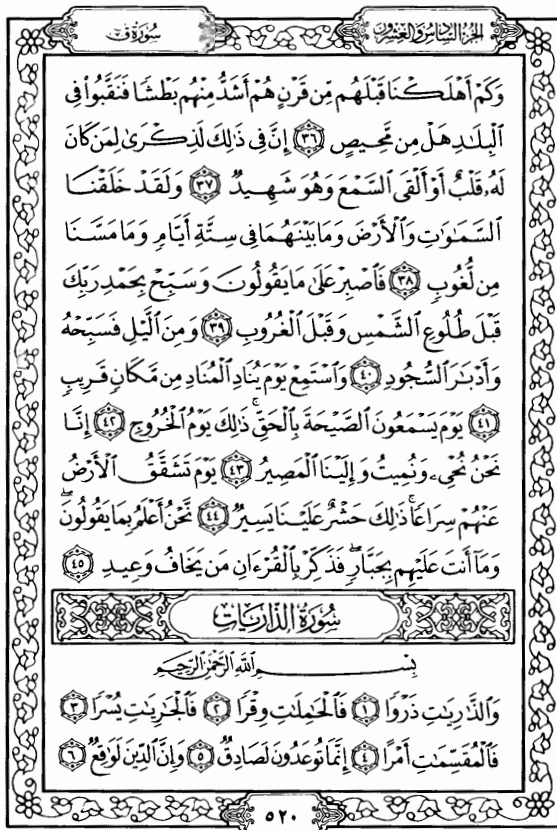 الجزء السادس والعشرون
سُورَةُ قٓ
وَكَمْ أَهْلَكْنَا قَبْلَهُم مِّن قَرْنٍ هُمْ أَشَدُّ مِنْهُم بَطْشًا فَنَقَّبُوا۟ فِى
ٱلْبِلَـٰدِ هَلْ مِن مَّحِيصٍ ٣٦ إِنَّ فِى ذَٰلِكَ لَذِكْرَىٰ لِمَن كَانَ
لَهُۥ قَلْبٌ أَوْ أَلْقَى ٱلسَّمْعَ وَهُوَ شَهِيدٌ ٣٧ وَلَقَدْ خَلَقْنَا
ٱلسَّمَـٰوَٰتِ وَٱلْأَرْضَ وَمَا بَيْنَهُمَا فِى سِتَّةِ أَيَّامٍ وَمَا مَسَّنَا
مِن لُّغُوبٍ ٣٨ فَٱصْبِرْ عَلَىٰ مَا يَقُولُونَ وَسَبِّحْ بِحَمْدِ رَبِّكَ
قَبْلَ طُلُوعِ ٱلشَّمْسِ وَقَبْلَ ٱلْغُرُوبِ ٣٩ وَمِنَ ٱلَّيْلِ فَسَبِّحْهُ
وَأَدْبَـٰرَ ٱلسُّجُودِ ٤٠ وَٱسْتَمِعْ يَوْمَ يُنَادِ ٱلْمُنَادِ مِن مَّكَانٍ قَرِيبٍ
٤١ يَوْمَ يَسْمَعُونَ ٱلصَّيْحَةَ بِٱلْحَقِّ ۚ ذَٰلِكَ يَوْمُ ٱلْخُرُوجِ ٤٢ إِنَّا
نَحْنُ نُحْىِۦ وَنُمِيتُ وَإِلَيْنَا ٱلْمَصِيرُ ٤٣ يَوْمَ تَشَقَّقُ ٱلْأَرْضُ
عَنْهُمْ سِرَاعًا ۚ ذَٰلِكَ حَشْرٌ عَلَيْنَا يَسِيرٌ ٤٤ نَّحْنُ أَعْلَمُ بِمَا يَقُولُونَ ۖ
وَمَآ أَنتَ عَلَيْهِم بِجَبَّارٍ ۖ فَذَكِّرْ بِٱلْقُرْءَانِ مَن يَخَافُ وَعِيدِ ٤٥
سُورَةُ الذَّارِيَاتِ
بِسْمِ ٱللَّهِ ٱلرَّحْمَـٰنِ ٱلرَّحِيمِ
وَٱلذَّٰرِيَـٰتِ ذَرْوًا ١ فَٱلْحَـٰمِلَـٰتِ وِقْرًا ٢ فَٱلْجَـٰرِيَـٰتِ يُسْرًا ٣
فَٱلْمُقَسِّمَـٰتِ أَمْرًا ٤ إِنَّمَا تُوعَدُونَ لَصَادِقٌ ٥ وَإِنَّ ٱلدِّينَ لَوَٰقِعٌ ٦
٥٢٠